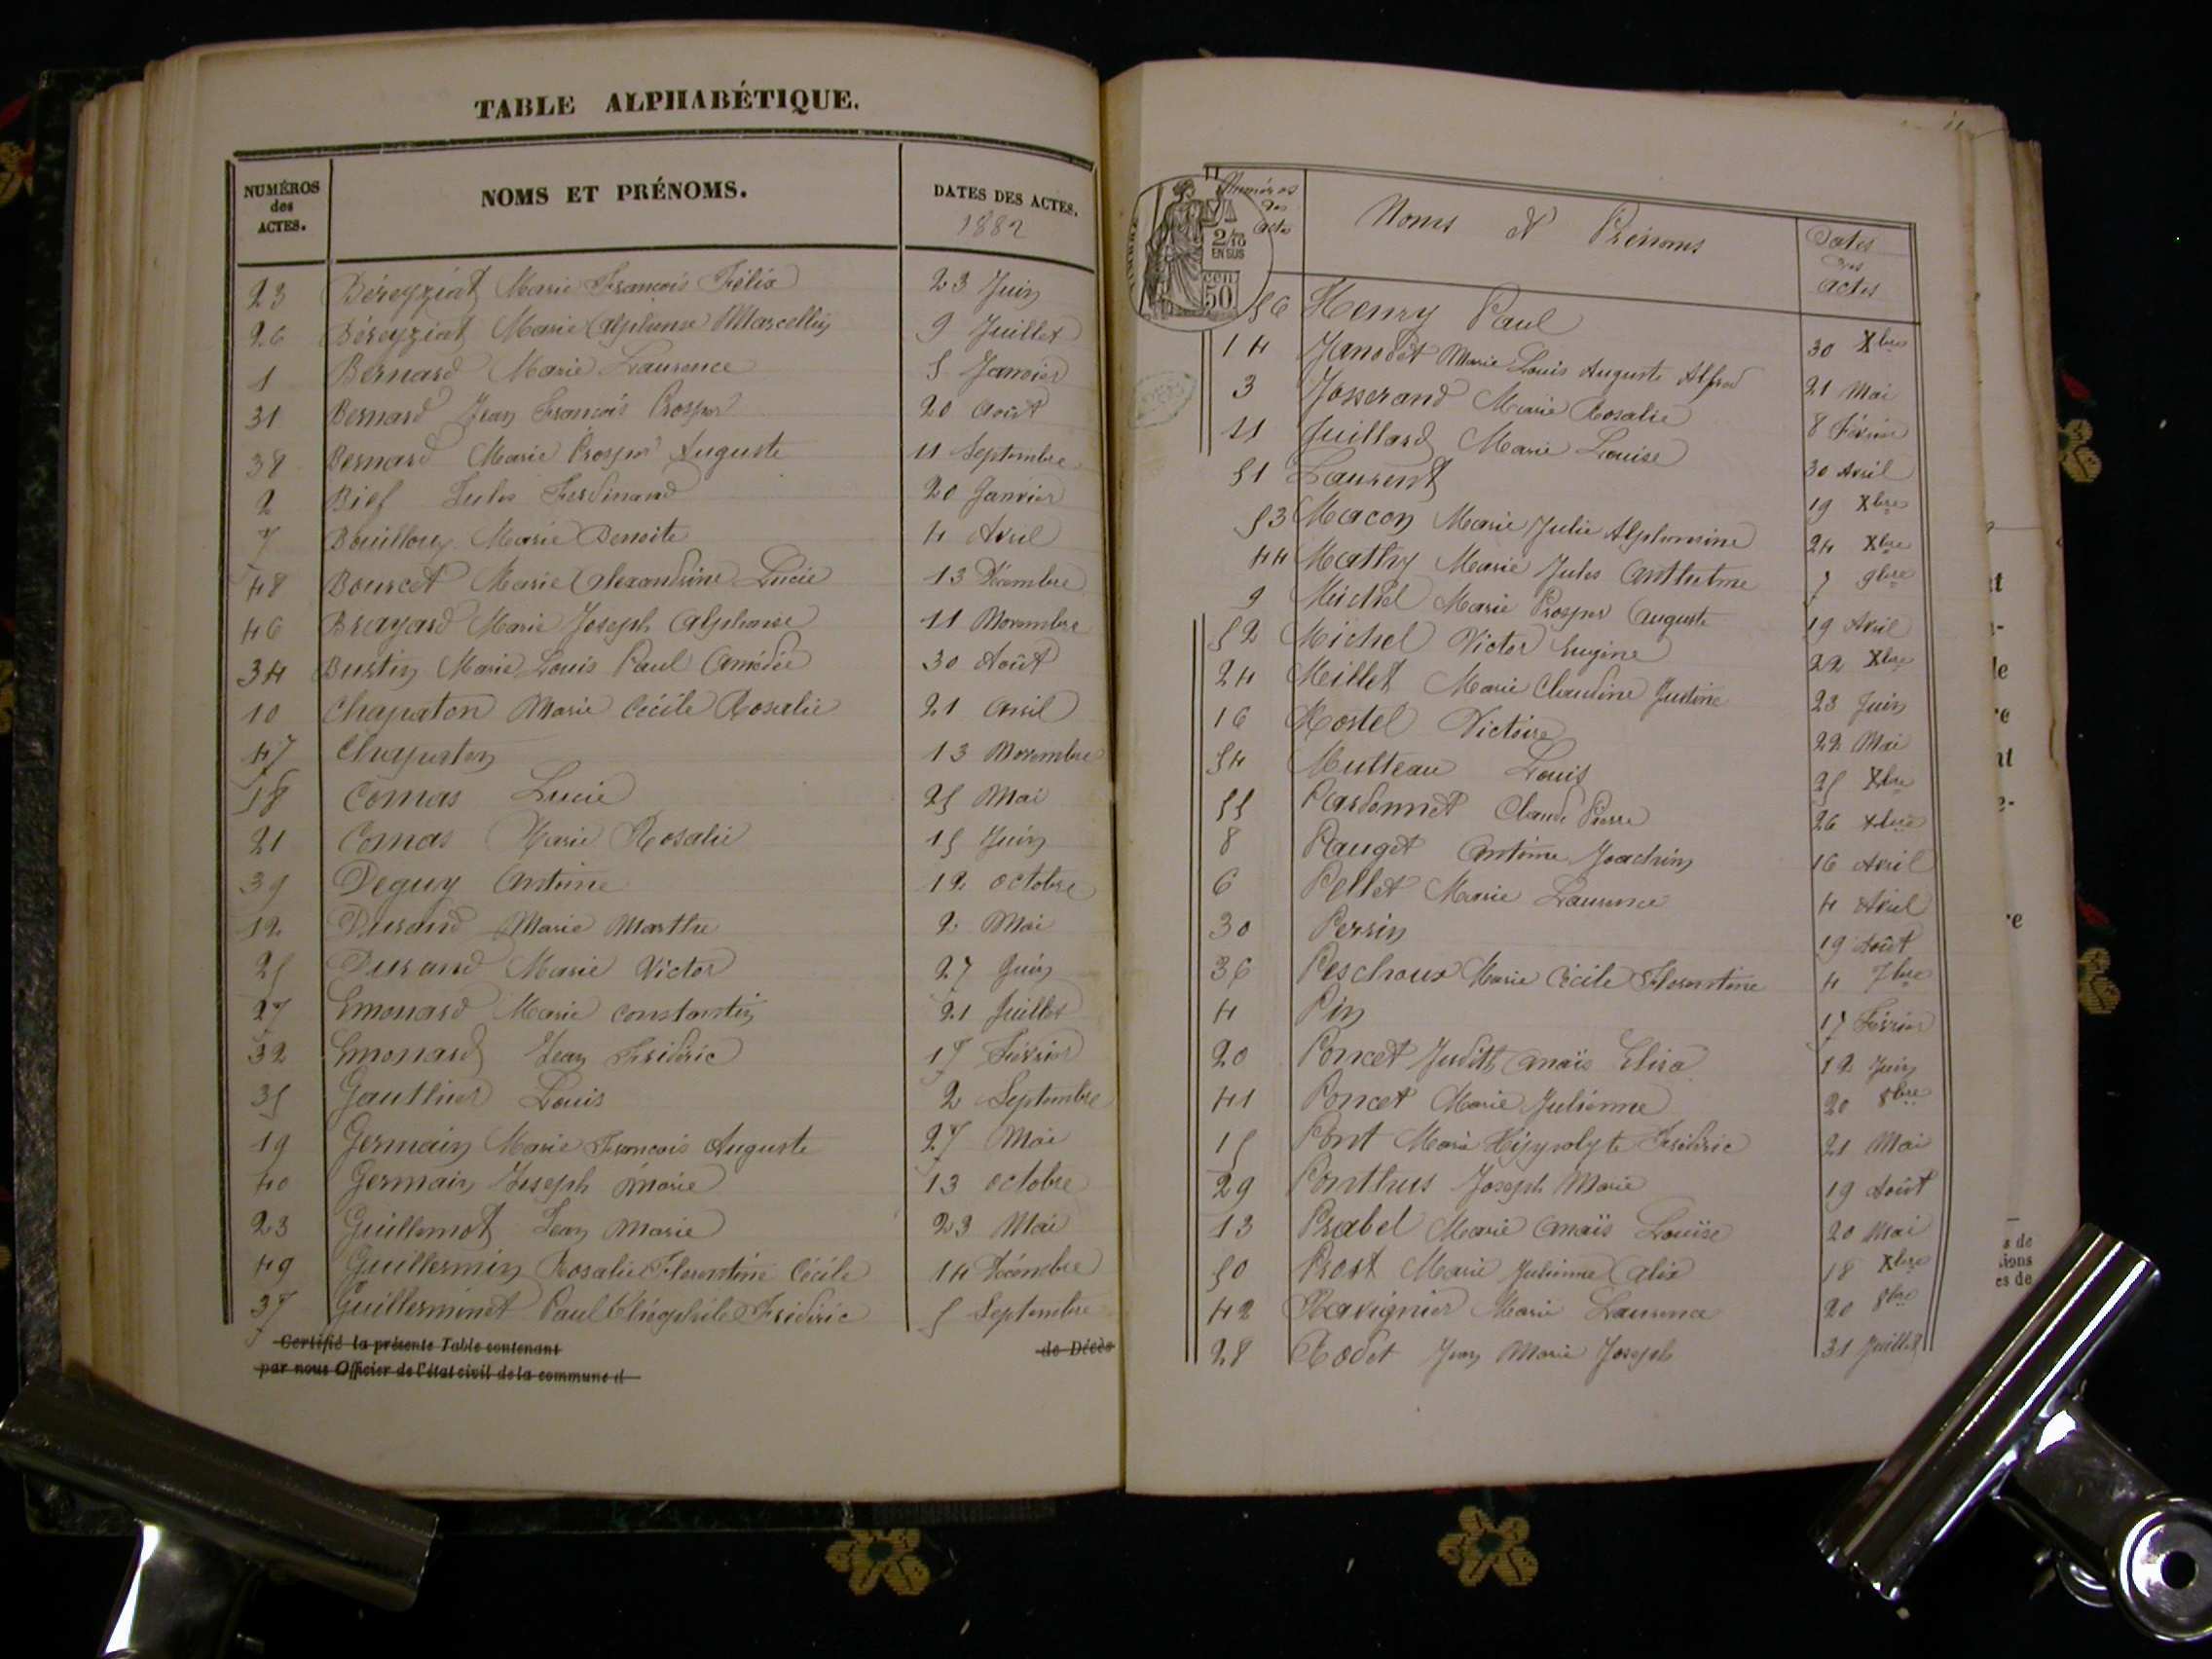 TABLE ALPHABÉTIQUE.
NUMÉROS des ACTES. NOMS ET PRÉNOMS. DATES DES ACTES.
1882
23 Béreyziat Marie François Félix 23 Juin
26 Béreyziat Marie Alphonse Marcellin 9 Juillet
1 Bernard Marie Laurence 5 Janvier
31 Bernard Jean François Prosper 20 Août
38 Bernard Marie Prosper Auguste 11 Septembre
2 Bief Jules Ferdinand 20 Janvier
7 Bouilloux Marie Benoite 4 Avril
48 Bourcet Marie Alexandrine Lucie 13 Décembre
46 Brayard Marie Joseph Alphonse 11 Novembre
34 Bustin Marie Louis Paul Amédée 30 Août
10 Chapaton Marie Cécile Rosalie 21 Avril
47 Chapaton 13 Novembre
18 Comas Lucie 25 Mai
21 Comas Marie Rosalie 15 Juin
39 Deguy Antoine 12 octobre
12 Durand Marie Marthe 2 Mai
25 Durand Marie Victor 27 Juin
27 Emonard Marie Constantin 21 Juillet
32 Emonard Jean Frédéric 17 Février
35 Gauthier Louis 2 Septembre
19 Germain Marie François Auguste 27 Mai
40 Germain Joseph Marie 13 octobre
23 Guillemot Jean Marie 23 Mai
49 Guillermin Rosalie Florentine Cécile 14 Décembre
37 Guillerminet Paul Théophile Frédéric 5 Septembre
Certifié la présente Table contenant de Décès
par nous Officier de l'état civil de la commune d
2/10 EN SUS
50 cen.
Numéros des actes Noms et Prénoms Dates des actes
56 Henry Paul 30 Xbre
14 Janodet Marie Louis Auguste Alfred 21 Mai
3 Josserand Marie Rosalie 8 Février
11 Juillard Marie Louise 30 Avril
51 Laurent 19 Xbre
53 Macon Marie Julie Alphonsine 24 Xbre
44 Mathy Marie Jules Anthelme 7 9bre
9 Michel Marie Prosper Auguste 19 Avril
52 Michel Victor Eugène 22 Xbre
24 Millet Marie Claudine Justine 23 Juin
16 Mostel Victoire 22 Mai
54 Multeau Louis 25 Xbre
55 Pardonnet Claude Pierre 26 Xbre
8 Pauget Antoine Joachim 16 Avril
6 Pellet Marie Laurence 4 Avril
30 Perrin 19 Août
36 Peschoux Marie Cécile Florentine 4 7bre
4 Pin 17 Février
20 Poncet Judith Anaïs Elisa 12 Juin
41 Poncet Marie Julienne 20 8bre
15 Pont Marie Hippolyte Frédéric 21 Mai
29 Ponthus Joseph Marie 19 Août
13 Prabel Marie Anaïs Louise 20 Mai
50 Prost Marie Julienne Alix 18 Xbre
42 Ravignier Marie Laurence 20 8bre
28 Rodet Jean Marie Joseph 31 Juillet